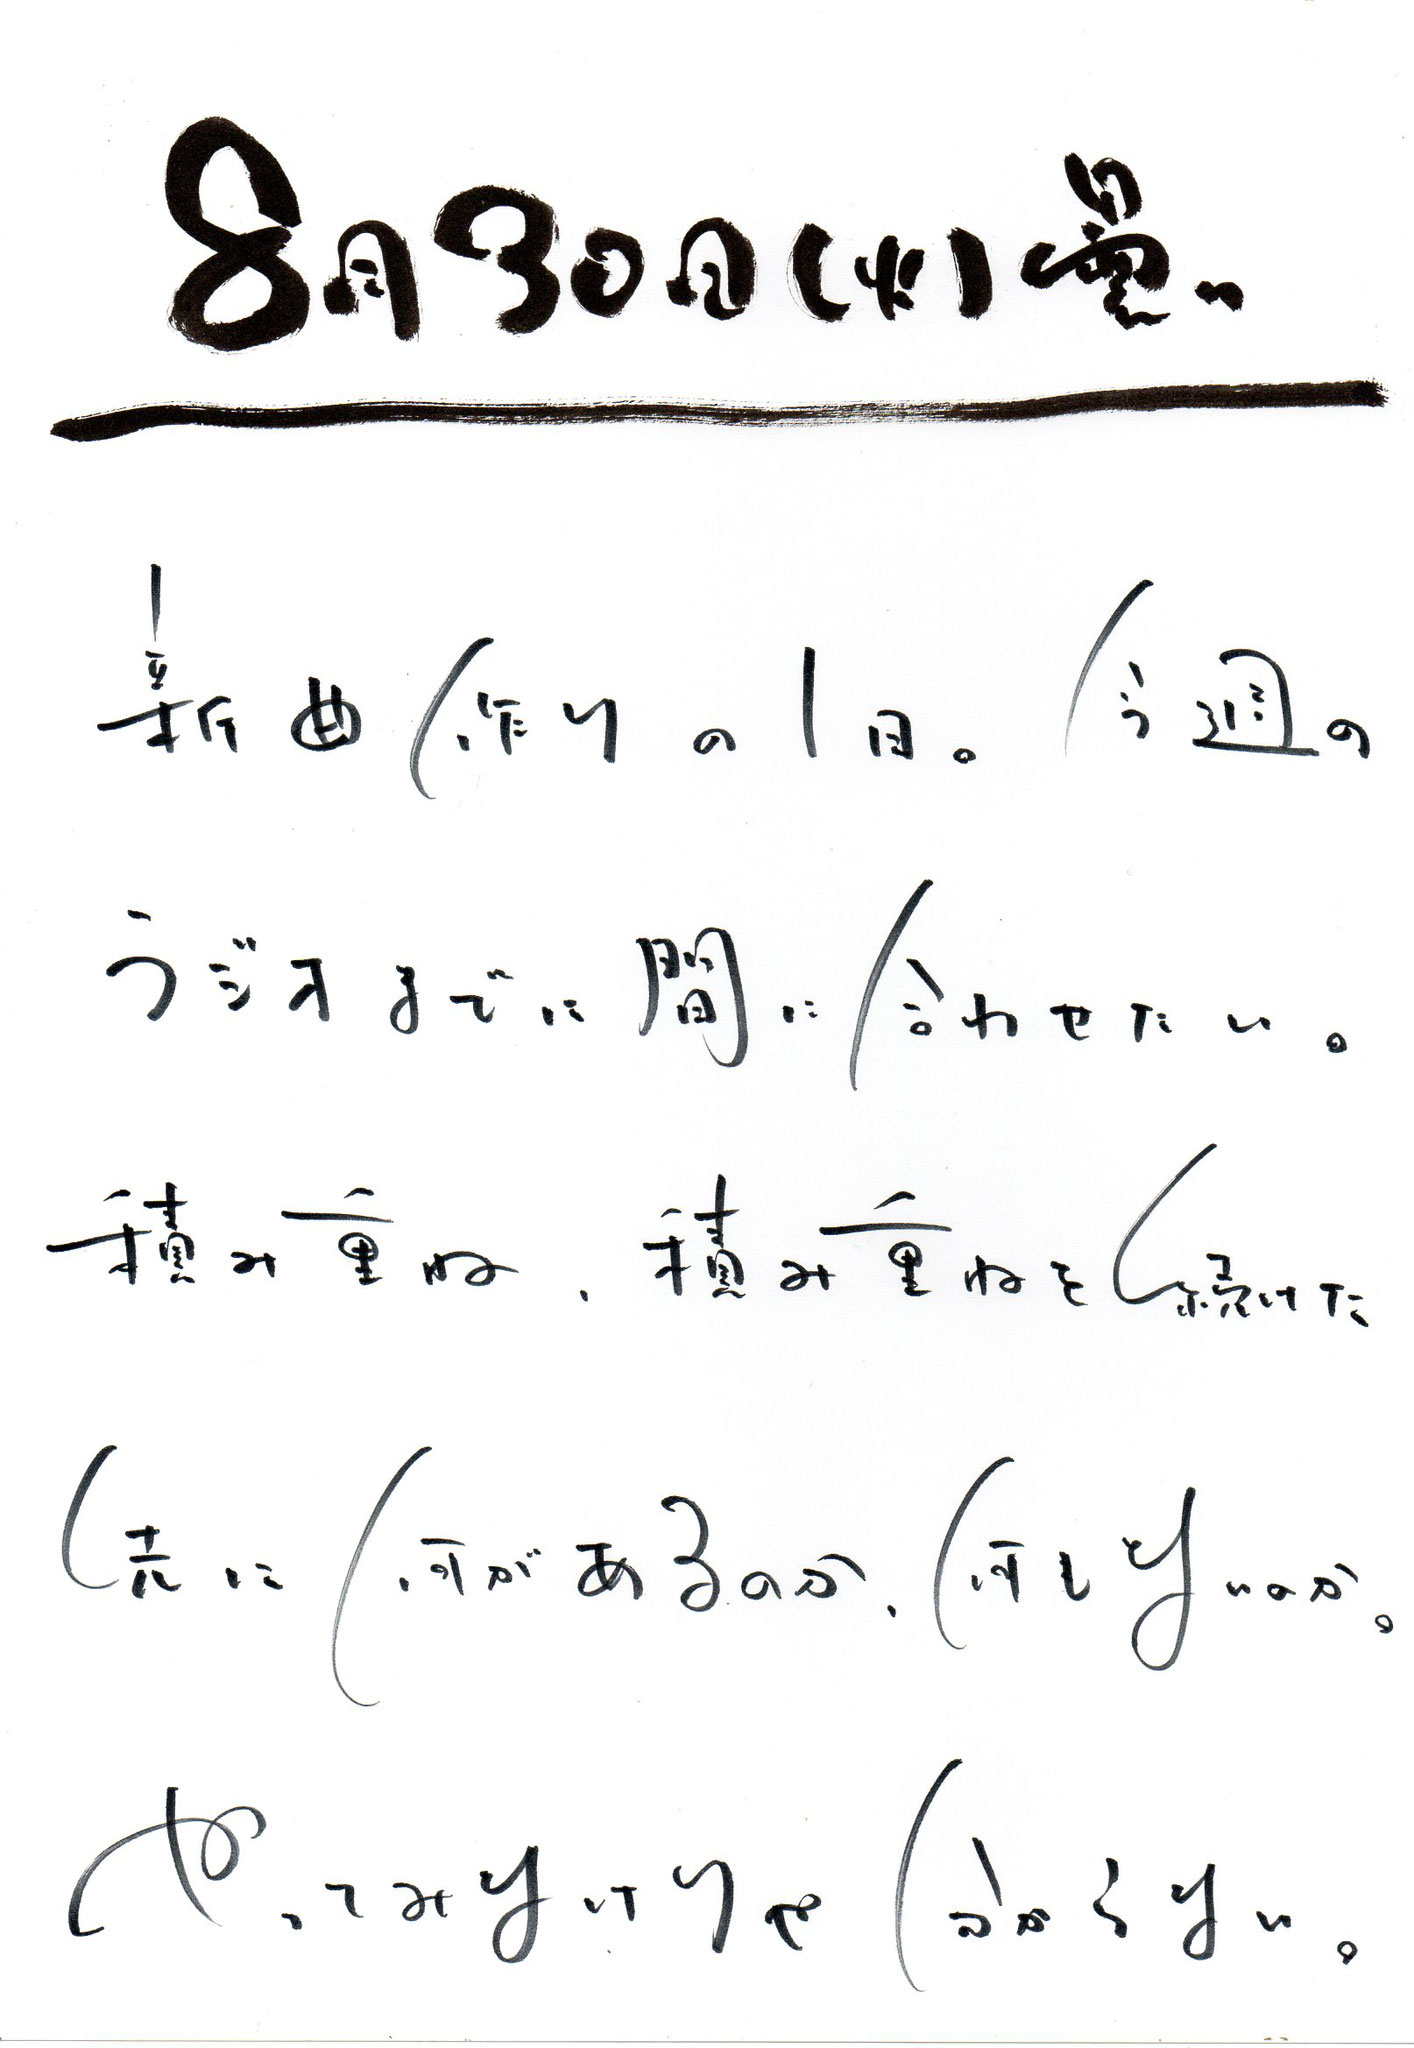 8月30日(火)曇り
新曲作りの1日。今週の
ラジオまでに間に合わせたい。
積み重ね、積み重ねを続けた
先に何があるのか、何もないのか。
やってみなけりゃ分からない。